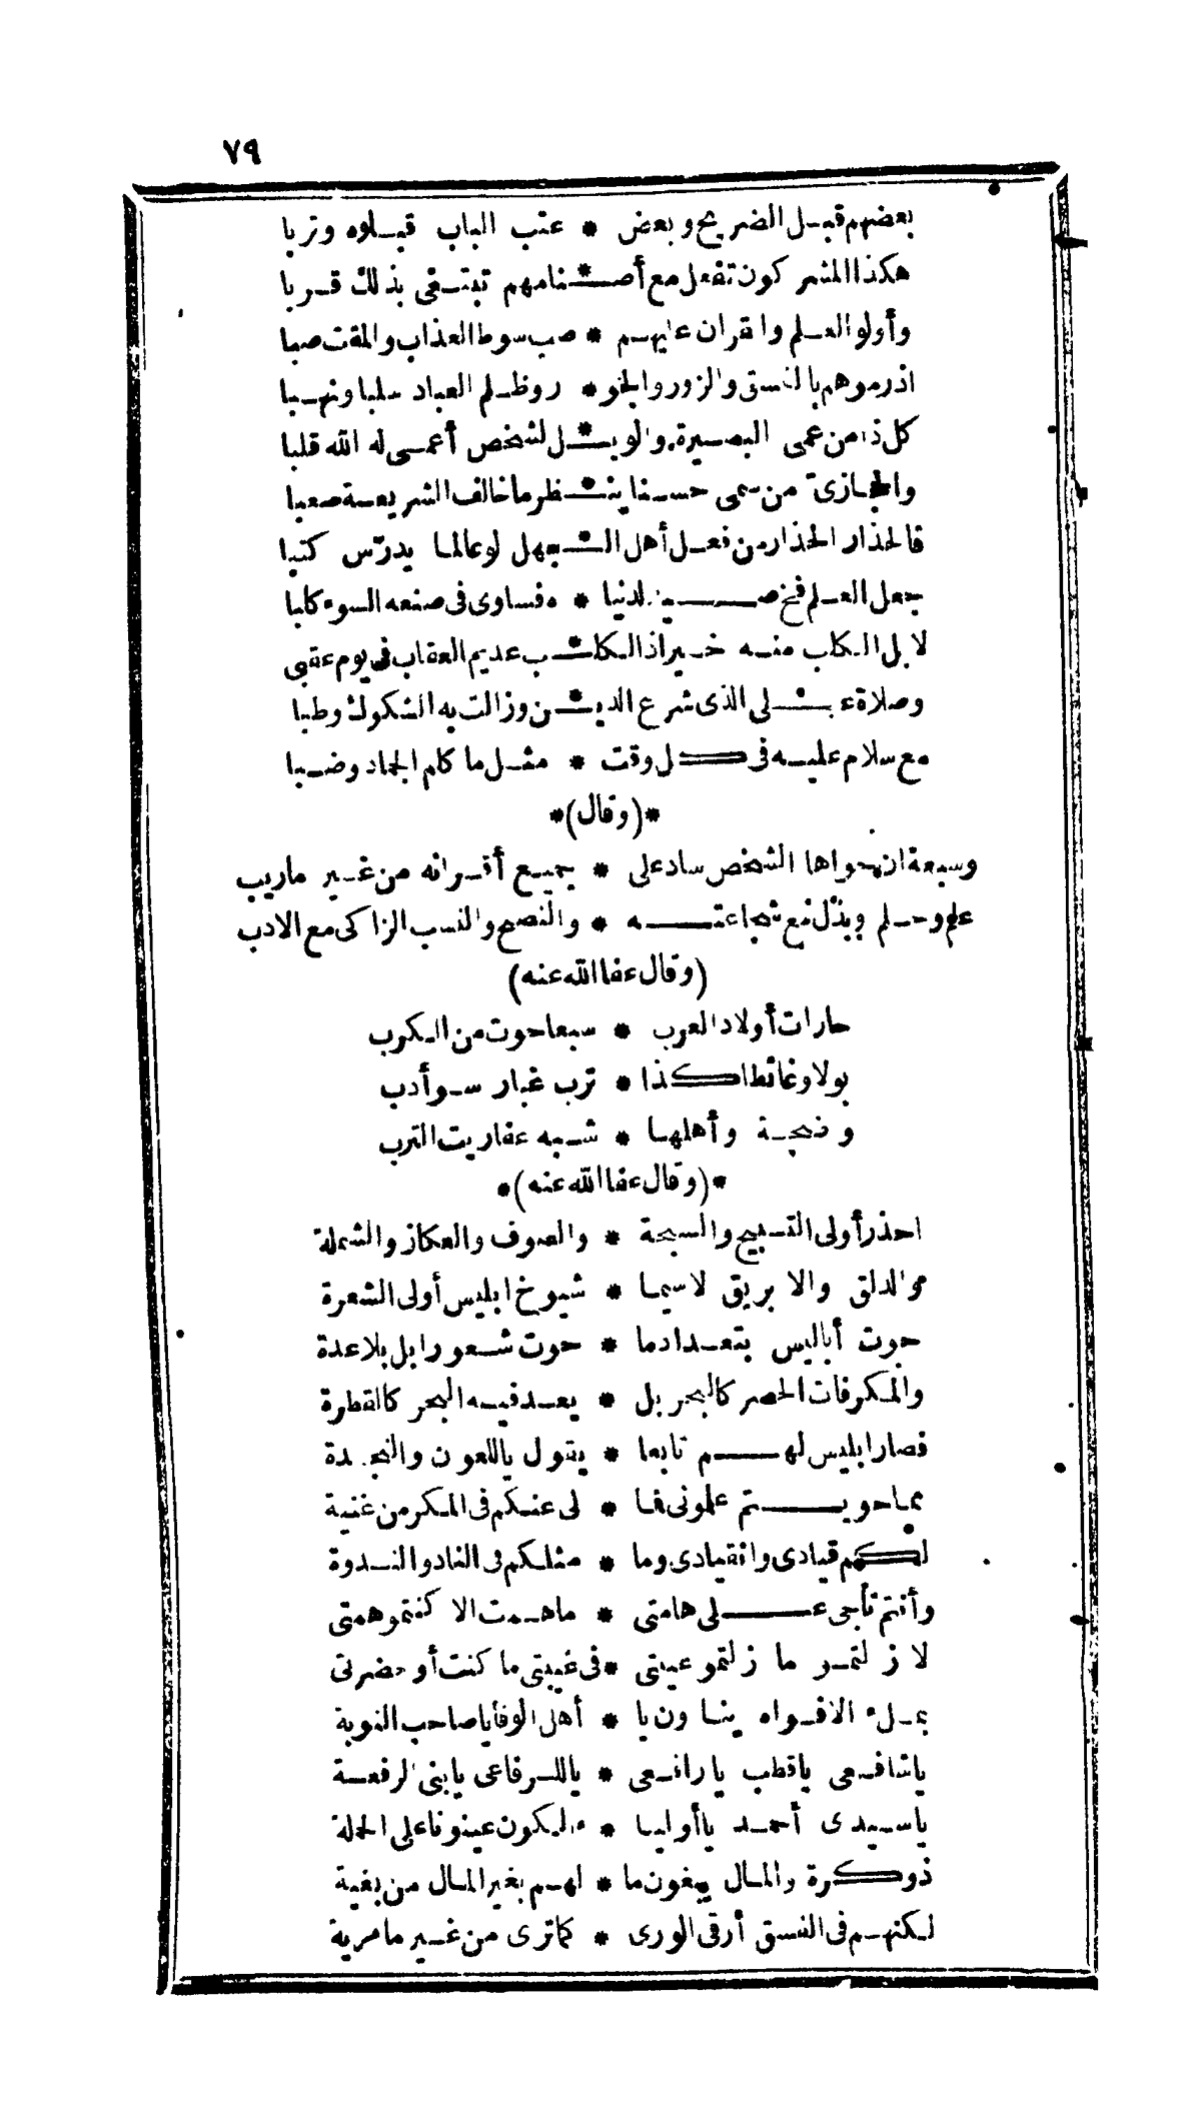 ٧٩
بعضهم قبـل الضريح وبعض * عتب الباب قبـلوه وتربا
هكذا المشركون تفعل مع أصـ*ـنامهم تبتـغى بذلك قـربا
وأولو العـلم والقران عليهـم * صب سوط العذاب والمقت صبا
اذرموهم بالفسق والزور والجو * روظـلم العباد سلبا ونهـبا
كل ذا من عمى البصـيرة والويـ*ـل لشخص أعمـى له الله قلبا
والحجازى من سمى حسـنا ينـ*ـظر ما خالف الشريعـة صعبا
فالحذار الحذار من فعـل أهل الـ*ـجهل لو عالما يدرّس كتبا
جعل العـلم فخ صـــيد لدنيا * ه فساوى فى صنعه السوء كلبا
لا بل الـكلب منـه خـير اذ الـكلـ*ـب عديم العقاب فى يوم عقبى
وصلاة عـ*ـلى الذى شرع الديـ*ـن وزالت به الشكوك وطبا
مع سلام عليـه فى كـل وقت * مثـل ما كلم الجماد وضـبا
*(وقال)*
وسبعة ان حواها الشخص ساد على * جميـع أقـرانه من غـير ماريب
علم وحـلم وبذل مع شجاعتـــه * والنصح والنسب الزاكى مع الادب
(وقال عفا الله عنه)
حارات أولاد العرب * سبعا حوت من الـكرب
بولا وغائطا كذا * ترب غبار سـوأدب
وضجـة وأهلهـا * شـبه عفاريت الترب
*(وقال عفا الله عنه)*
احذر أولى التسـبيح والسبحة * والصوف والعكاز والشملة
والدلق والابريق لاسيما * شيوخ ابليس أولى الشعرة
حوت أباليس بتعـدادما * حوت شـعورا بل بلاعدة
والمكر فات الحصر كالبحر بل * يعـد فيـه البحر كالقطرة
فصار ابليس لهـــم تابعا * يقول ياللعون والنجـدة
بما حويـــتم علمونى فما * لى عنـكم فى المـكر من غنية
لكم قيادى وانقيادى وما * مثلـكم فى الناد والنـدوة
وأنتم تاجى عـــلى هامتى * ماهـمت الا كنتمو همتى
لا زلتمـو ما زلتمو عيبتى * فى غيبتى ما كنت أو حضرتى
بمـلء الافـواه ينـادون يا * أهل الوفا يا صاحب النوبة
يا شافـعى يا قطب يا رافـعى * ياللـرفاعى يا بنى الرفعـة
يا سـيدى أحمـد يا أوليـا * عينونا على الحملة
ذوكـرة والمـال يبغون ما * لهـم بغير المـال من بغية
لـكنهـم فى الفسق أرقى الورى * كما ترى من غـير ما مرية